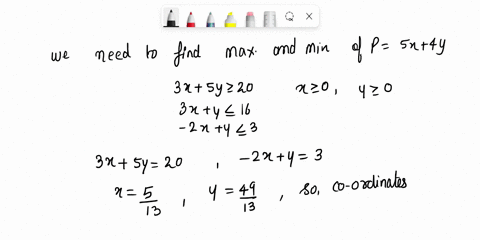 we need to find max. and min of P = 5x+4y
3x+5y ≥ 20 x ≥ 0, y ≥ 0
3x+y ≤ 16
-2x+y ≤ 3
3x+5y = 20 , -2x+y = 3
x = 5/13 , y = 49/13 , so, co-ordinates